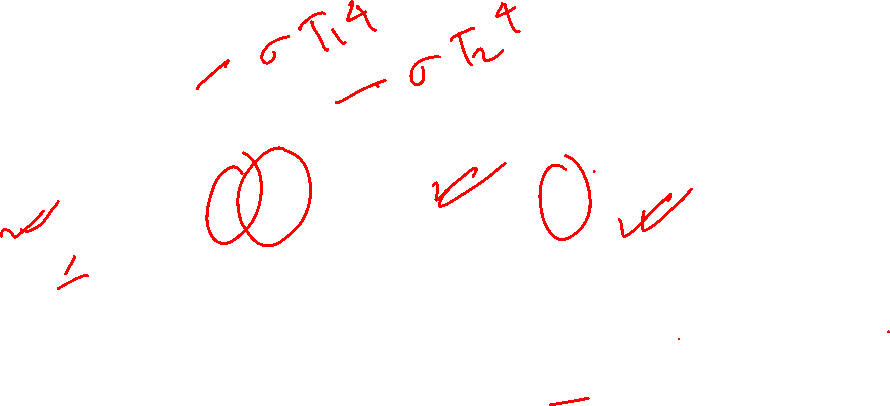 - σT₁⁴
- σT₂⁴